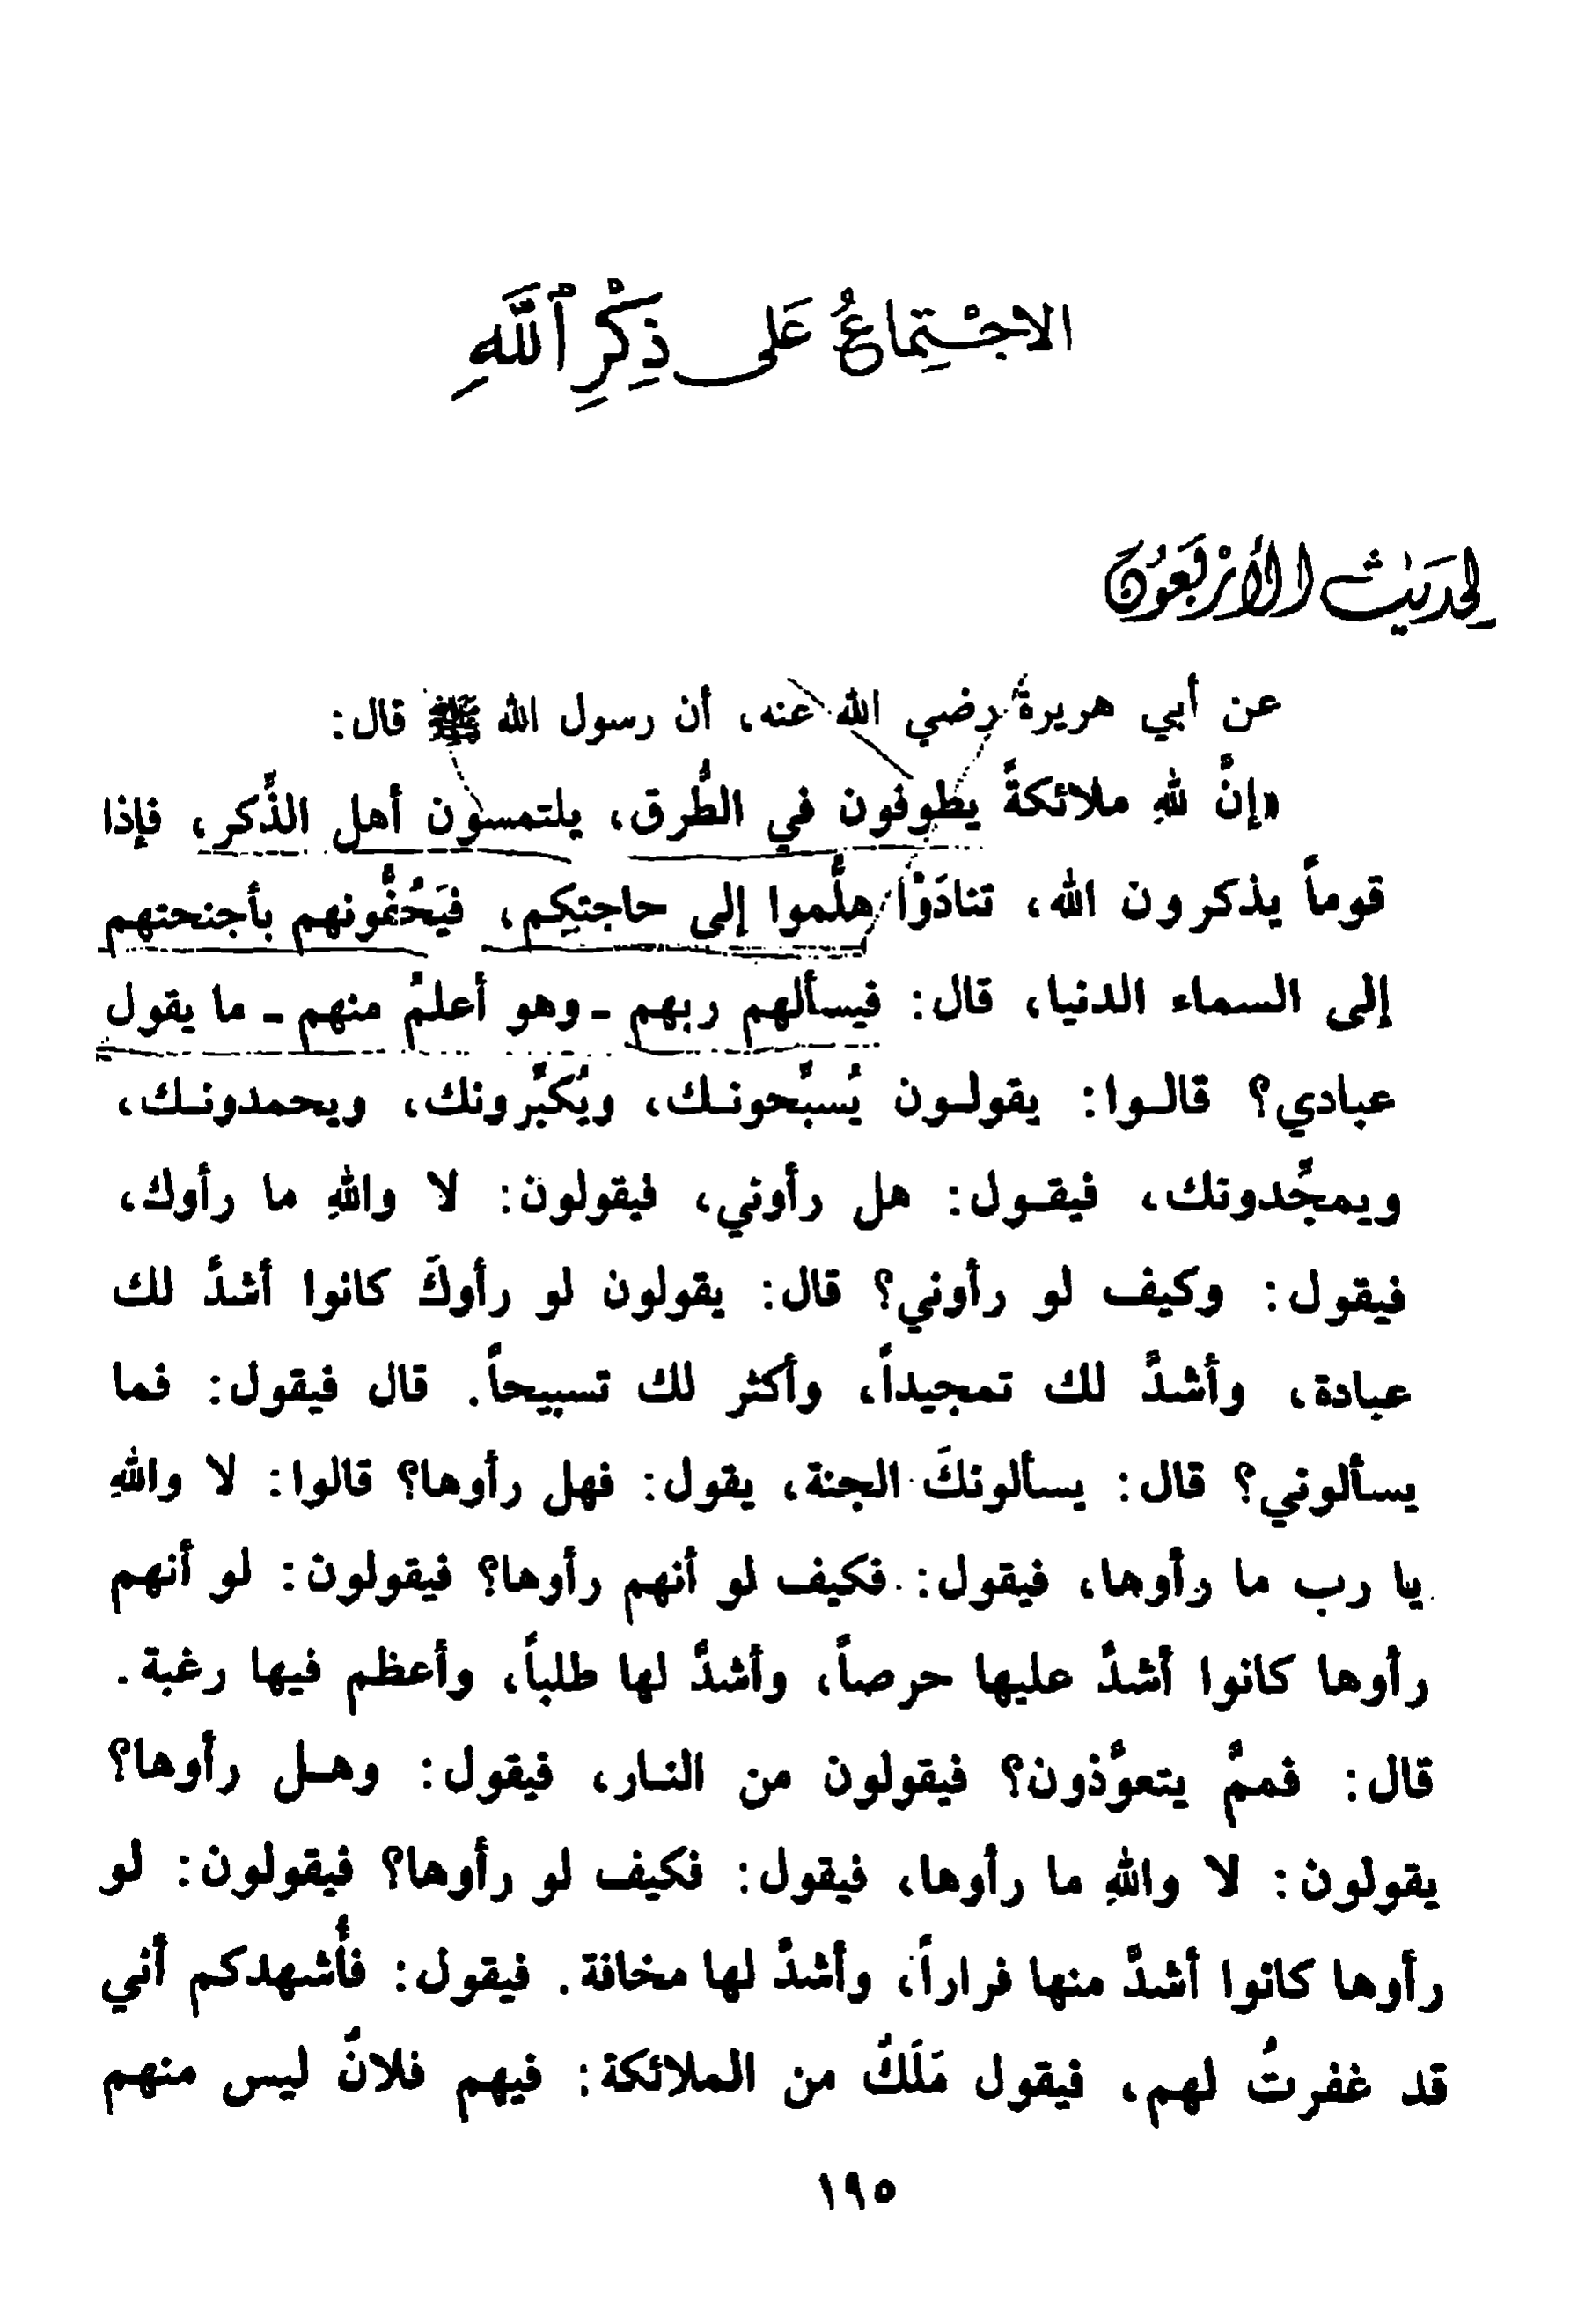 الاجْتِماعُ عَلى ذِكْرِ ٱللَّهِ
لحديث الأربعون
عن أبي هريرة رضي الله عنه، أن رسول الله ﷺ قال:
«إنَّ للهِ ملائكةً يطوفون في الطُّرق، يلتمسون أهل الذِّكر، فإذا
قوماً يذكرون الله، تنادَوْا هلُّموا إلى حاجتِكم، فيَحُفُّونهم بأجنحتهم
إلى السماء الدنيا، قال: فيسألهم ربهم ـ وهو أعلمُ منهم ـ ما يقول
عبادي؟ قالـوا: يقولـون يُسبِّحونـك، ويُكبِّرونك، ويحمدونـك،
ويمجِّدونك، فيقـول: هل رأوني، فيقولون: لا واللهِ ما رأوك،
فيقول: وكيف لو رأوني؟ قال: يقولون لو رأوكَ كانوا أشدَّ لك
عبادة، وأشدَّ لك تمجيداً، وأكثر لك تسبيحاً. قال فيقول: فما
يسألوني؟ قال: يسألونكَ الجنة، يقول: فهل رأوها؟ قالوا: لا واللهِ
يا رب ما رأوها، فيقول: فكيف لو أنهم رأوها؟ فيقولون: لو أنهم
رأوها كانوا أشدَّ عليها حرصاً، وأشدَّ لها طلباً، وأعظم فيها رغبة.
قال: فممَّ يتعوَّذون؟ فيقولون من النـار، فيقول: وهـل رأوها؟
يقولون: لا واللهِ ما رأوها، فيقول: فكيف لو رأوها؟ فيقولون: لو
رأوها كانوا أشدَّ منها فراراً، وأشدَّ لها مخافة. فيقول: فأُشهدكم أني
قد غفرتُ لهم، فيقول مَلَكٌ من الملائكة: فيهم فلانٌ ليس منهم
١٩٥